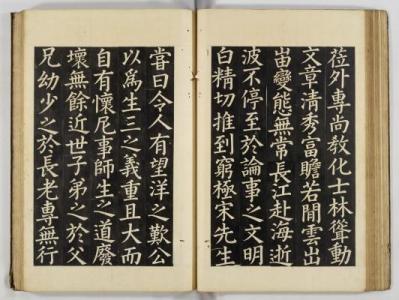 莅外專尚敎化士林聳動
文章清秀富贍若閒雲出
峀變態無常長江赴海逝
波不停至於論事之文明
白精切推到窮極宋先生
嘗曰令人有望洋之歎公
以爲生三之義重且大而
自有懷尼事師生之道廢
壞無餘近世子弟之於父
兄幼少之於長老專無行